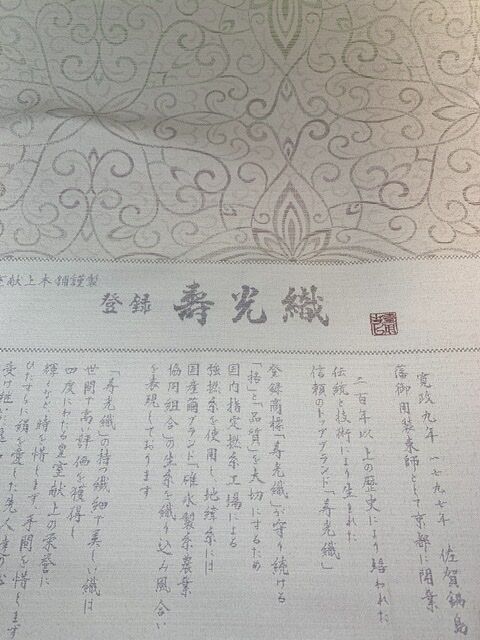 献上本舗謹製
登録 寿光織
寛政九年 一七九七年 佐賀鍋島
藩御用装束師として京都に開業
二百年以上の歴史により培われた
伝統と技術により生まれた
信頼のトップブランド「寿光織」
登録商標「寿光織」が守り続ける
「格」と「品質」を大切にするため
国内指定撚糸工場による
強撚糸を使用し、地緯糸には
国産繭ブランド「碓氷製糸農業
協同組合」の生糸を織り込み風合い
を表現しております
「寿光織」の持つ繊細で美しい織は
世間で高い評価を獲得し
四度にわたる皇室献上の栄誉に
輝くなど、時を惜しまず、手間を惜しまず
ひたすらに絹を愛した先人達の
受け継